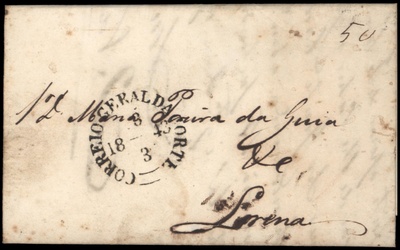 50
CORREIO GERAL DA CORTE
8
18 43
3
Maria Pereira da Guia
de
Lorena